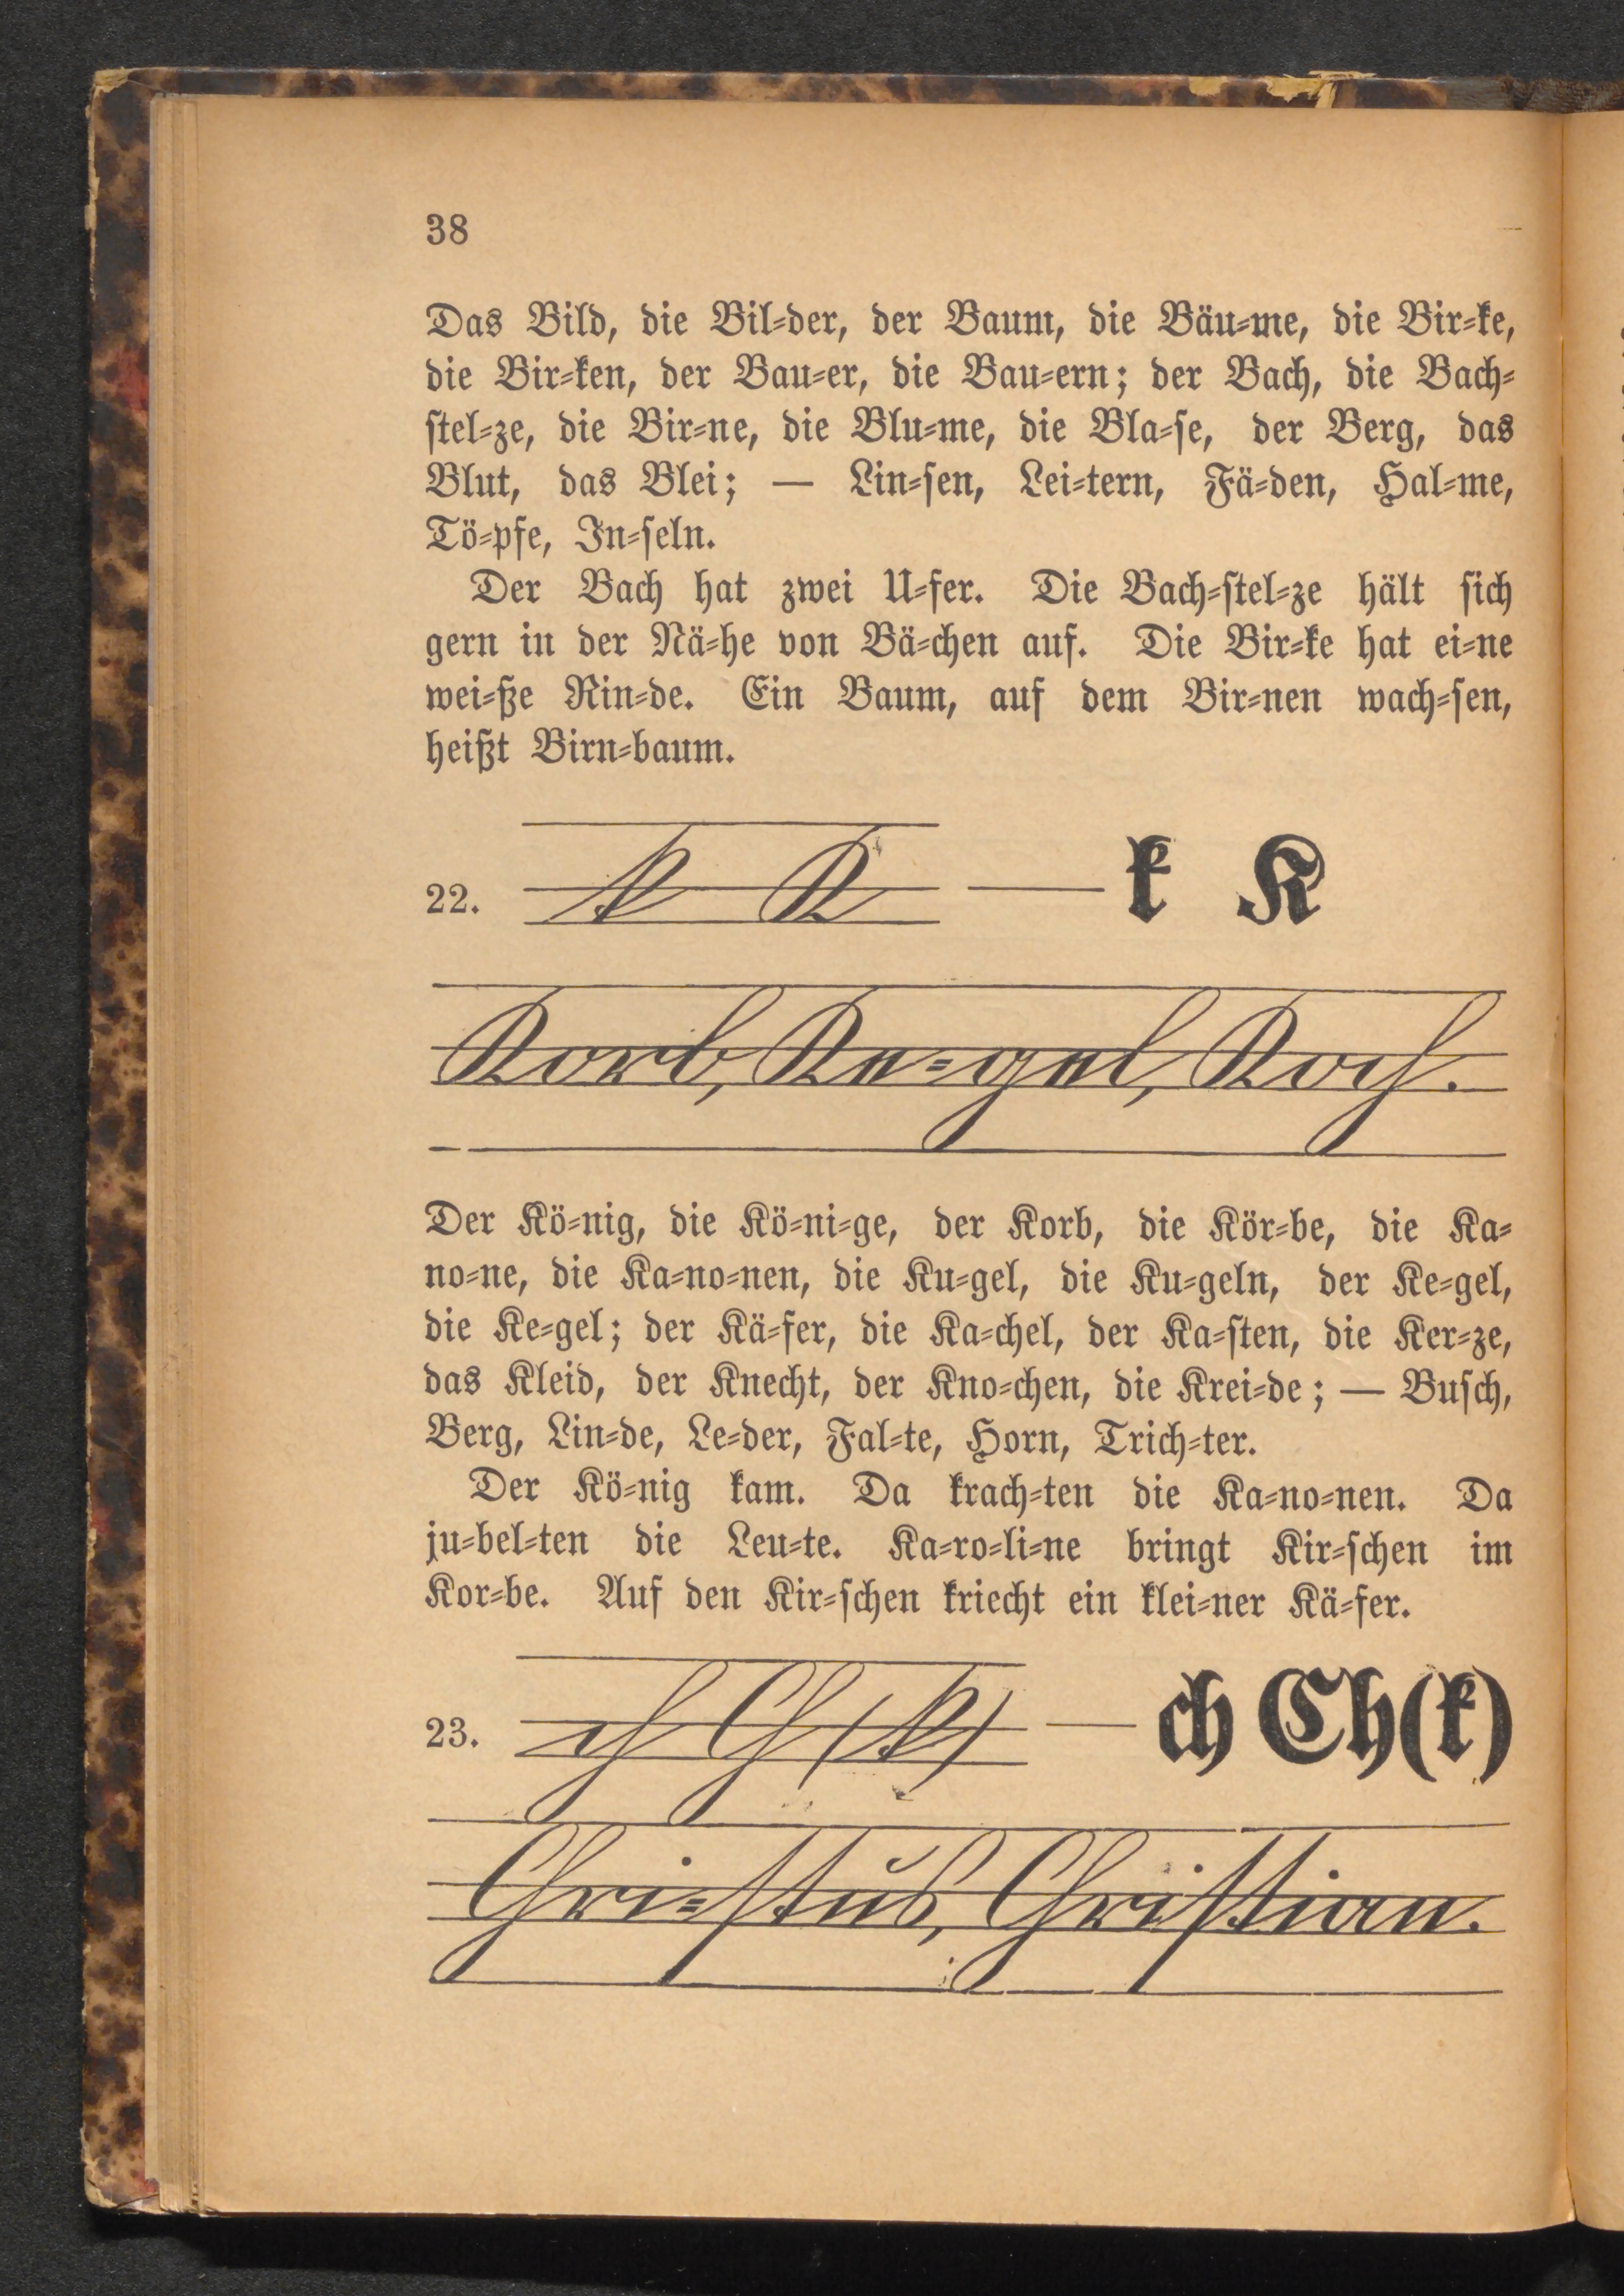 38
Das Bild, die Bil⸗der, der Baum, die Bäu⸗me, die Bir⸗ke,
die Bir⸗ken, der Bau⸗er, die Bau⸗ern; der Bach, die Bach⸗
ſtel⸗ze, die Bir⸗ne, die Blu⸗me, die Bla⸗ſe, der Berg, das
Blut, das Blei; — Lin⸗ſen, Lei⸗tern, Fä⸗den, Hal⸗me,
Tö⸗pfe, In⸗ſeln.
Der Bach hat zwei U⸗fer. Die Bach⸗ſtel⸗ze hält ſich
gern in der Nä⸗he von Bä⸗chen auf. Die Bir⸗ke hat ei⸗ne
wei⸗ße Rin⸗de. Ein Baum, auf dem Bir⸗nen wach⸗ſen,
heißt Birn⸗baum.
22. k K — k K
Korb, Ke⸗gel, Koch.
Der Kö⸗nig, die Kö⸗ni⸗ge, der Korb, die Kör⸗be, die Ka⸗
no⸗ne, die Ka⸗no⸗nen, die Ku⸗gel, die Ku⸗geln, der Ke⸗gel,
die Ke⸗gel; der Kä⸗fer, die Ka⸗chel, der Ka⸗ſten, die Ker⸗ze,
das Kleid, der Knecht, der Kno⸗chen, die Krei⸗de; — Buſch,
Berg, Lin⸗de, Le⸗der, Fal⸗te, Horn, Trich⸗ter.
Der Kö⸗nig kam. Da krach⸗ten die Ka⸗no⸗nen. Da
ju⸗bel⸗ten die Leu⸗te. Ka⸗ro⸗li⸗ne bringt Kir⸗ſchen im
Kor⸗be. Auf den Kir⸗ſchen kriecht ein klei⸗ner Kä⸗fer.
23. ch Ch (k) — ch Ch (k)
Chri⸗ſtus, Chriſtian.